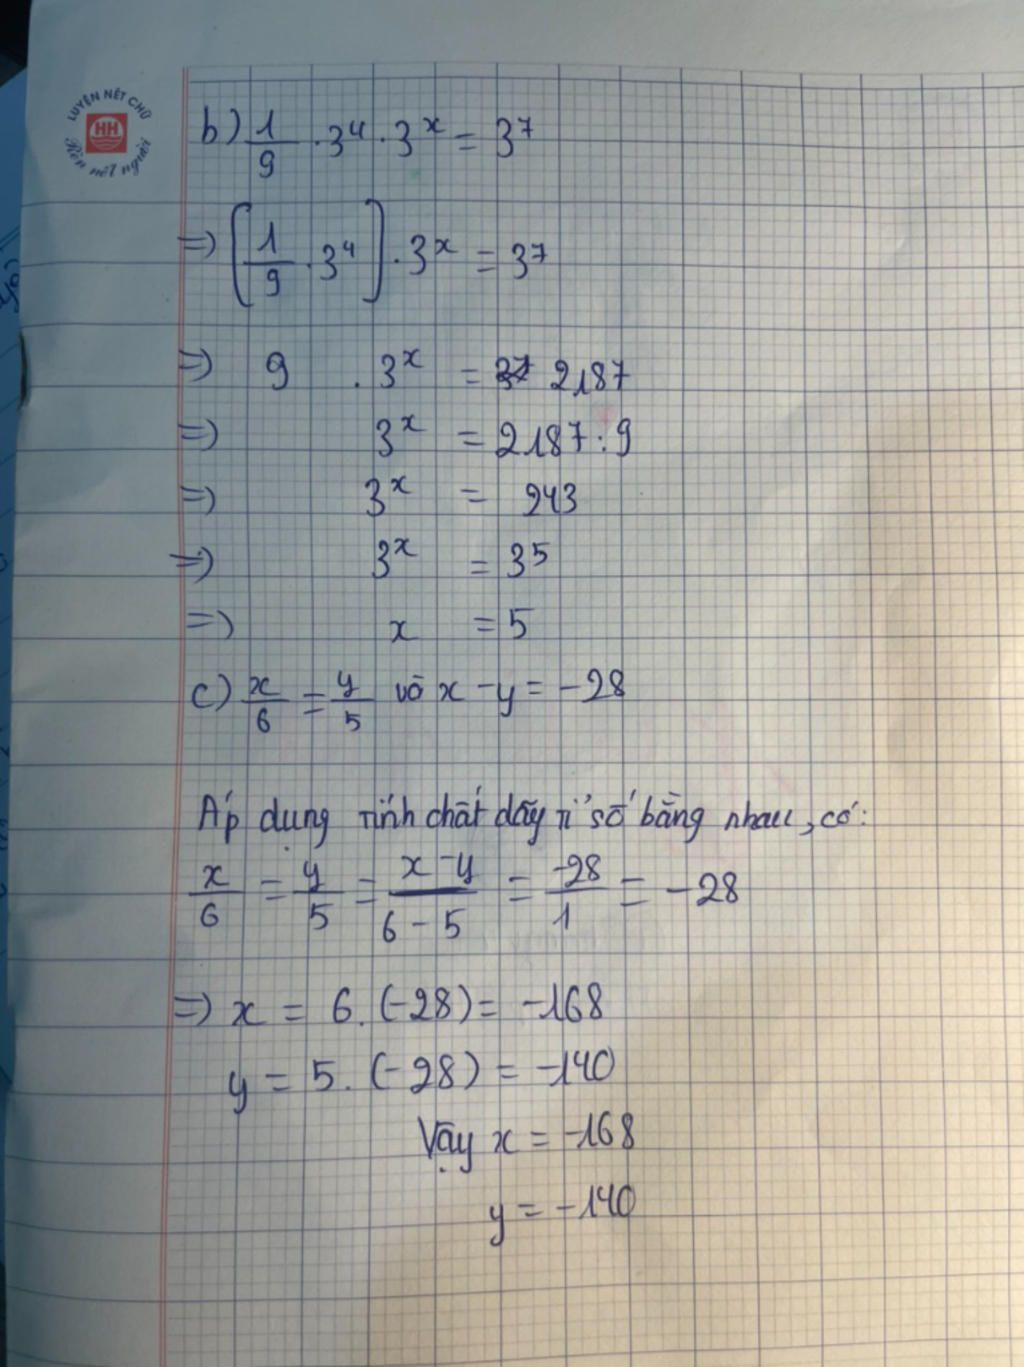 LUYỆN NÉT CHỮ
HH
Rèn nết người
b) 1/9 . 3⁴ . 3ˣ = 3⁷
=> [1/9 . 3⁴] . 3ˣ = 3⁷
=> 9 . 3ˣ = 2187
=> 3ˣ = 2187 : 9
=> 3ˣ = 243
=> 3ˣ = 3⁵
=> x = 5
c) x/6 = y/5 và x - y = -28
Áp dụng tính chất dãy tỉ số bằng nhau, có:
x/6 = y/5 = x - y/6 - 5 = -28/1 = -28
=> x = 6. (-28) = -168
y = 5. (-28) = -140
Vậy x = -168
y = -140